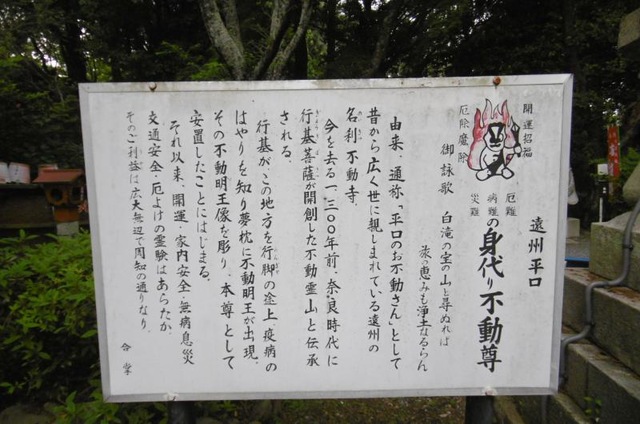 遠州平口
厄難
病難
災難
の身代り不動尊
開運招福
厄除魔除
御詠歌 白滝の宝の山と尋ぬれば
旅の恵みも浄土なるらん
由来、通称、平口のお不動さんとして
昔から広く世に親しまれている遠州の
名刹不動寺。
今を去る一、三〇〇年前、奈良時代に
行基菩薩が開創した不動霊山と伝承
される。
行基がこの地方を行脚の途上、疫病の
はやりを知り夢枕に不動明王が出現。
その不動明王像を彫り、本尊として
安置したことにはじまる。
それ以来、開運・家内安全・無病息災
交通安全・厄よけの霊験はあらたか。
そのご利益は広大無辺で周知の通りなり。
合掌